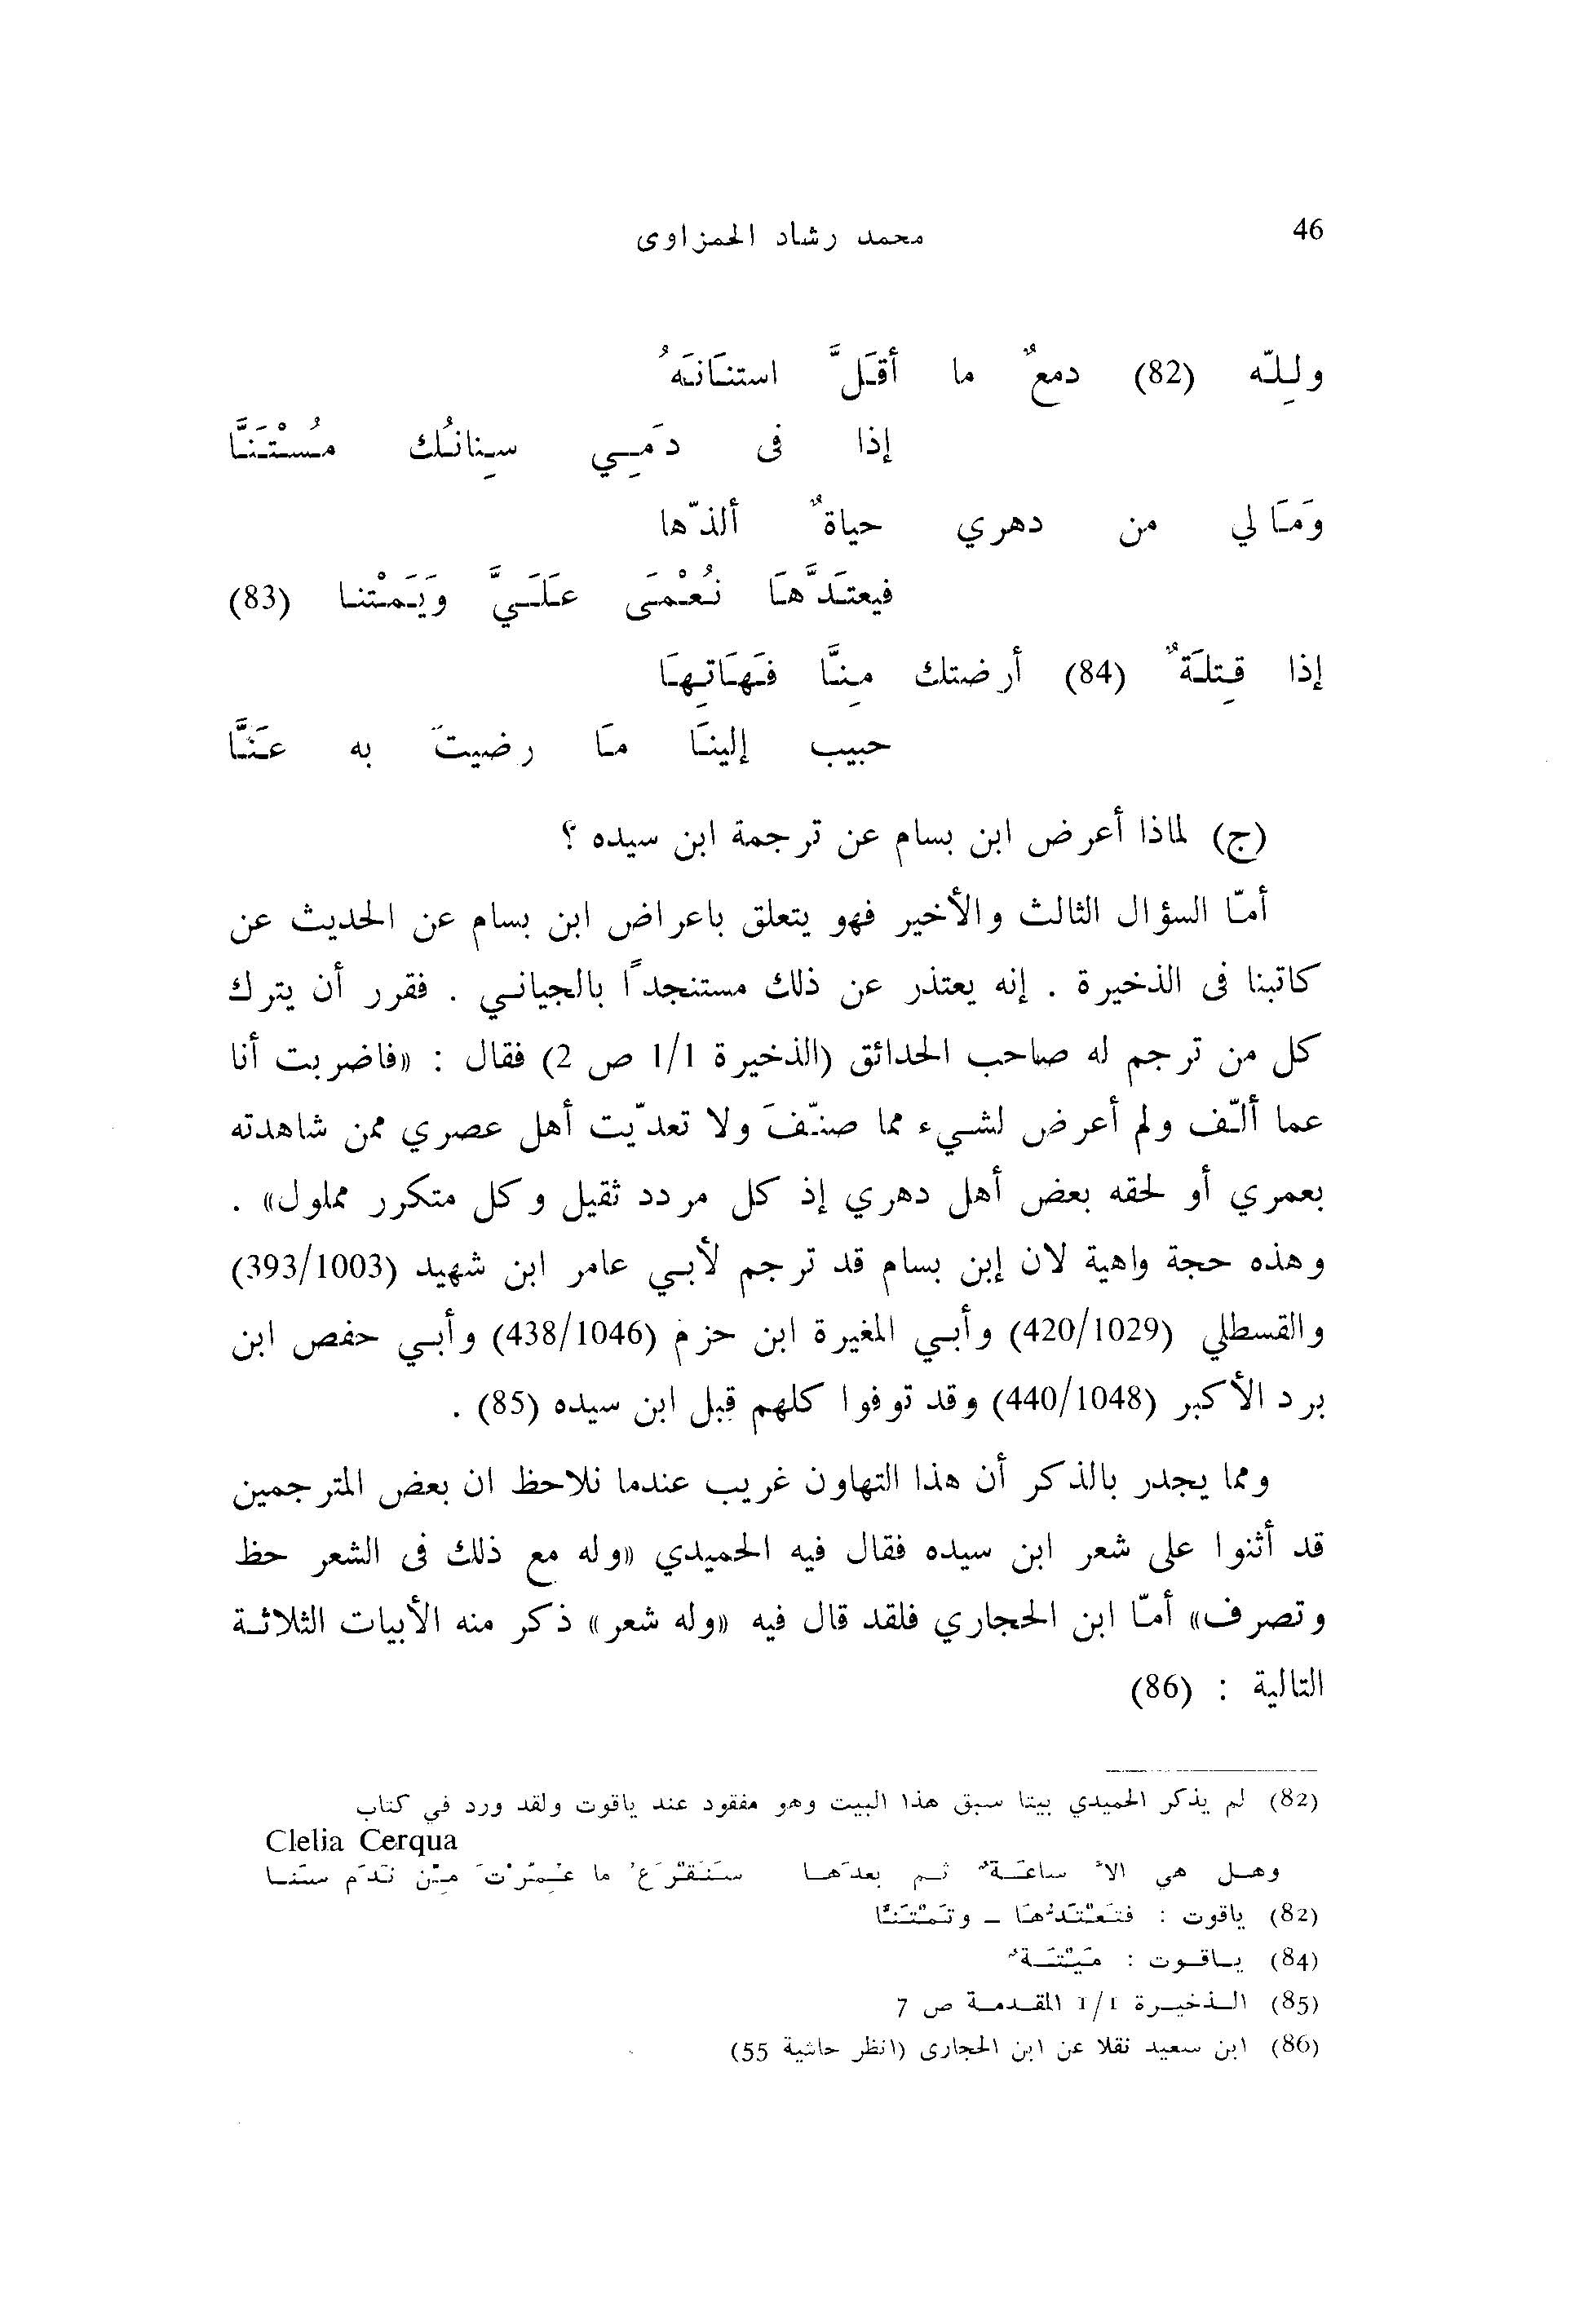 46
محمد رشاد الحمزاوى
ولِلّه (82) دمعٌ ما أقَلَّ استنَانَهُ
إذا فى دَمِي سِنانُك مُسْتَنَّا
وَمَا لي من دهري حياةٌ ألذّها
فيعتَدَّهَا نُعْمَى عَلَيَّ وَيَمْتنا (83)
إذا قِتلَةٌ (84) أرضتك مِنَّا فَهَاتِهَا
حبيب إلينَا مَا رضيتَ به عَنَّا
(ج) لماذا أعرض ابن بسام عن ترجمة ابن سيده ؟
أمّا السؤال الثالث والأخير فهو يتعلق باعراض ابن بسام عن الحديث عن
كاتبنا فى الذخيرة . إنه يعتذر عن ذلك مستنجداً بالجياني . فقرر أن يترك
كل من ترجم له صاحب الحدائق (الذخيرة 1/1 ص 2) فقال : «فاضربت أنا
عما ألّف ولم أعرض لشيء مما صنّفَ ولا تعدّيت أهل عصري ممن شاهدته
بعمري أو لحقه بعض أهل دهري إذ كل مردد ثقيل وكل متكرر مملول» .
وهذه حجة واهية لان إبن بسام قد ترجم لأبي عامر ابن شهيد (393/1003)
والقسطلي (420/1029) وأبي المغيرة ابن حزم (438/1046) وأبي حفص ابن
برد الأكبر (440/1048) وقد توفوا كلهم قبل ابن سيده (85) .
ومما يجدر بالذكر أن هذا التهاون غريب عندما نلاحظ ان بعض المترجمين
قد أثنوا على شعر ابن سيده فقال فيه الحميدي «وله مع ذلك فى الشعر حظ
وتصرف» أمّا ابن الحجاري فلقد قال فيه «وله شعر» ذكر منه الأبيات الثلاثة
التالية : (86)
(82) لم يذكر الحميدي بيتا سبق هذا البيت وهو مفقود عند ياقوت ولقد ورد في كتاب
Clelia Cerqua
وهل هي الاّ ساعَةٌ ثم بعدَها سَنَقْرَعُ ما عُمِّرْتَ مِنْ نَدَم سنَا
(82) ياقوت : فتَعْتَدُّهَا – وتَمْتَنَّا
(84) ياقوت : مَيْتَةٌ
(85) الذخيرة 1/1 المقدمة ص 7
(86) ابن سعيد نقلا عن ابن الحجارى (انظر حاشية 55)